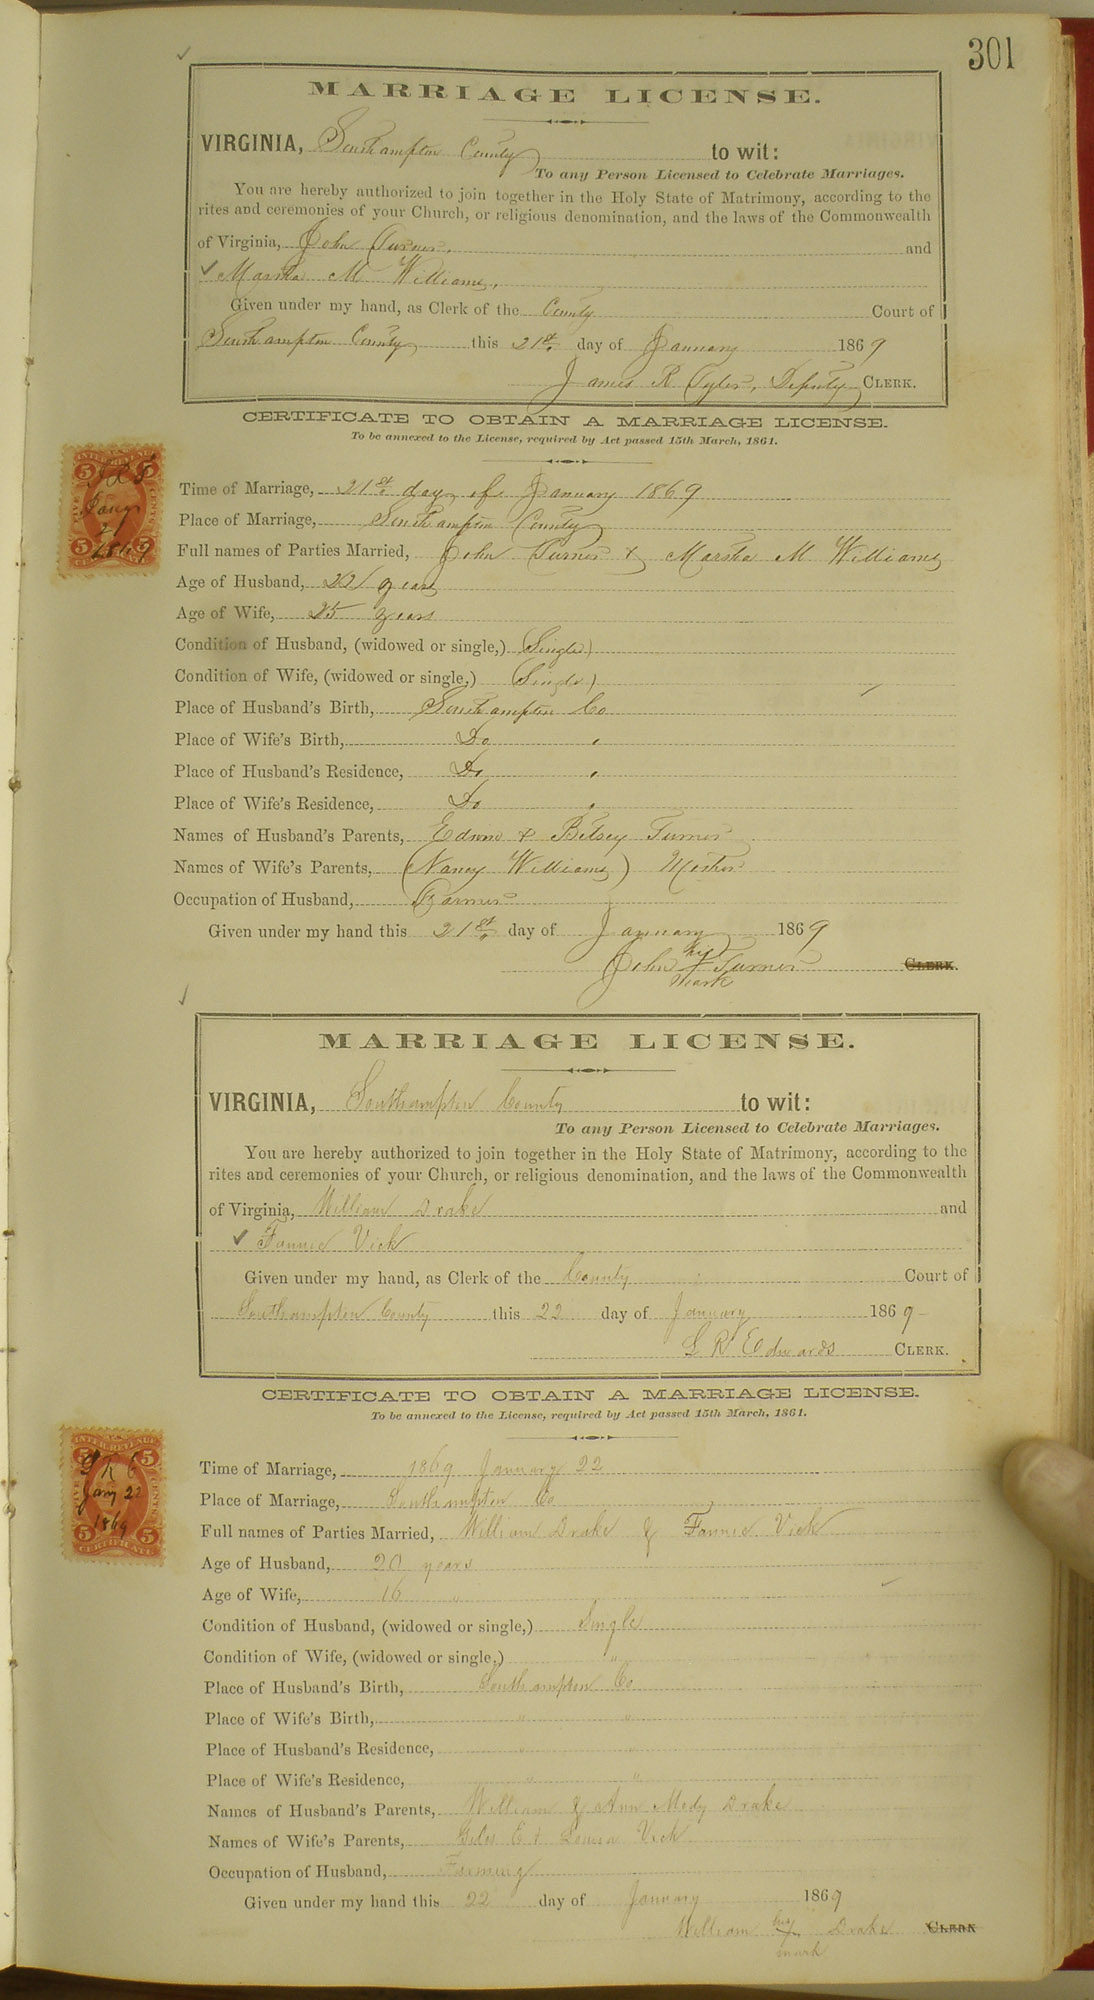 301
MARRIAGE LICENSE.
VIRGINIA, Southampton County to wit:
To any Person Licensed to Celebrate Marriages.
You are hereby authorized to join together in the Holy State of Matrimony, according to the
rites and ceremonies of your Church, or religious denomination, and the laws of the Commonwealth
of Virginia, John Turner. and
✓ Martha M Williams,
Given under my hand, as Clerk of the County Court of
Southampton County this 21st. day of January 1869
James R Tyler, Deputy CLERK.
CERTIFICATE TO OBTAIN A MARRIAGE LICENSE.
To be annexed to the License, required by Act passed 15th March, 1861.
INTER. REVENUE
5 5
FIVE CENTS
Jany
21
1869
5 5
CERTIFICATE
Time of Marriage, 21st. day of January 1869
Place of Marriage, Southampton County
Full names of Parties Married, John Turner & Martha M Williams
Age of Husband, 22 years
Age of Wife, 25 years
Condition of Husband, (widowed or single,) (Single)
Condition of Wife, (widowed or single,) (Single)
Place of Husband's Birth, Southampton Co
Place of Wife's Birth, Do "
Place of Husband's Residence, Do "
Place of Wife's Residence, Do "
Names of Husband's Parents, Edwin & Betsey Turner
Names of Wife's Parents, (Nancy Williams) Mother
Occupation of Husband, Farmer
Given under my hand this 21st. day of January 1869
his
John + Turner CLERK.
mark
MARRIAGE LICENSE.
VIRGINIA, Southampton County to wit:
To any Person Licensed to Celebrate Marriages.
You are hereby authorized to join together in the Holy State of Matrimony, according to the
rites and ceremonies of your Church, or religious denomination, and the laws of the Commonwealth
of Virginia, William Drake and
✓ Fannie Vick
Given under my hand, as Clerk of the County Court of
Southampton County this 22 day of January 1869
L R Edwards CLERK.
CERTIFICATE TO OBTAIN A MARRIAGE LICENSE.
To be annexed to the License, required by Act passed 15th March, 1861.
INTER. REVENUE
5 5
FIVE CENTS
L R E
Jany 22
1869
5 5
CERTIFICATE
Time of Marriage, 1869 January 22
Place of Marriage, Southampton Co
Full names of Parties Married, William Drake & Fannie Vick
Age of Husband, 20 years
Age of Wife, 16 "
Condition of Husband, (widowed or single,) Single
Condition of Wife, (widowed or single,) "
Place of Husband's Birth, Southampton Co
Place of Wife's Birth, " "
Place of Husband's Residence, " "
Place of Wife's Residence, " "
Names of Husband's Parents, William & Ann Mody Drake
Names of Wife's Parents, Giles E & Louisa Vick
Occupation of Husband, Farming
Given under my hand this 22 day of January 1869
his
William + Drake CLERK
mark